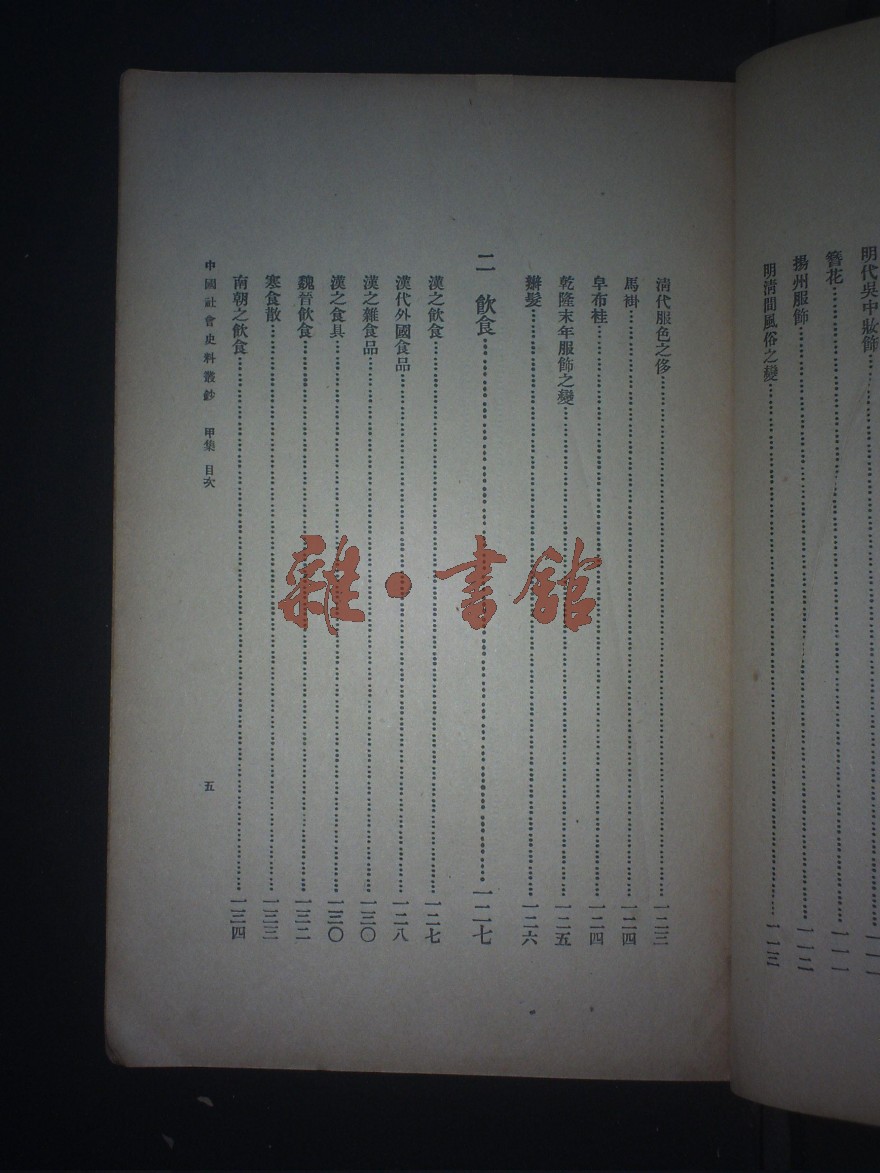 明代吳中妝飾
簪花……一一一
揚州服飾……一一二
明清間風俗之變……一二三
清代服色之侈……一二三
馬褂……一二四
皁布袿……一二四
乾隆末年服飾之變……一二五
辮髮……一二六
二 飲食……一二七
漢之飲食……一二七
漢代外國食品……一二八
漢之雜食品……一三〇
漢之食具……一三〇
魏晉飲食……一三二
寒食散……一三三
南朝之飲食……一三四
中國社會史料叢鈔 甲集 目次 五
雜·書館